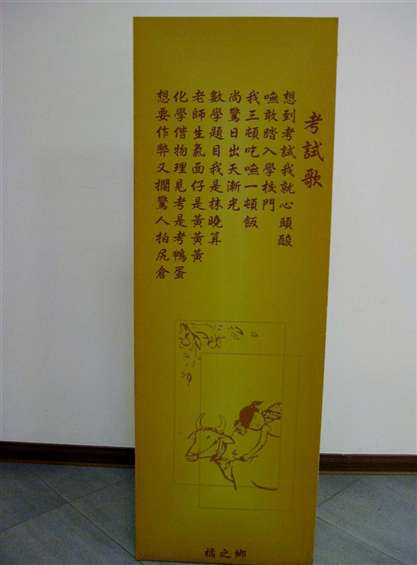 考試歌
想到考試我就心頭酸
嘸敢踏入學校門
我三頓吃嘸一頓飯
尚驚日出天漸光
數學題目我是抹曉算
老師生氣面仔是黃黃黃
化學偕物理見考是考鴨蛋
想要作弊又擱驚人拍尻倉
橘之鄉